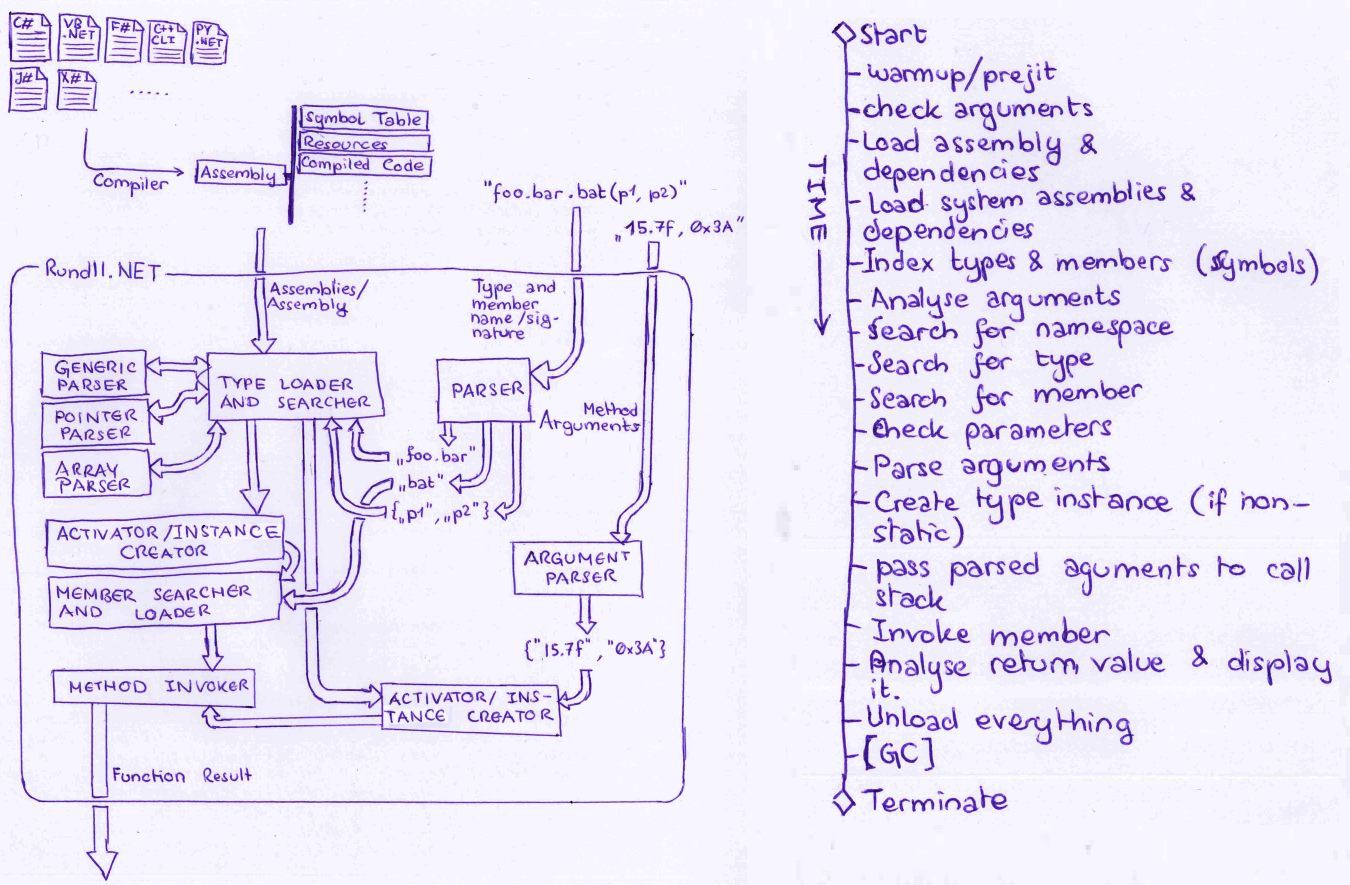 C#
VB
.NET
F#
C++
CLI
PY
.NET
J#
X#
.....
Symbol Table
Resources
Compiled Code
Compiler
Assembly
"foo.bar.bat(p1, p2)"
„15.7f, 0x3A"
Rundll.NET
Assemblies/
Assembly
Type and
member
name/sig-
nature
GENERIC
PARSER
POINTER
PARSER
ARRAY
PARSER
TYPE LOADER
AND SEARCHER
PARSER
Method
Arguments
„foo.bar"
„bat"
{„p1", „p2"}
ACTIVATOR/INSTANCE
CREATOR
MEMBER SEARCHER
AND LOADER
ARGUMENT
PARSER
{"15.7f", "0x3A"}
METHOD INVOKER
ACTIVATOR/ INS-
TANCE CREATOR
Function Result
TIME
Start
warmup/prejit
check arguments
Load assembly &
dependencies
Load system assemblies &
dependencies
Index types & members (symbols)
Analyse arguments
Search for namespace
Search for type
Search for member
Check parameters
Parse arguments
Create type instance (if non-
static)
pass parsed aguments to call
stack
Invoke member
Analyse return value & display
it.
Unload everything
[GC]
Terminate